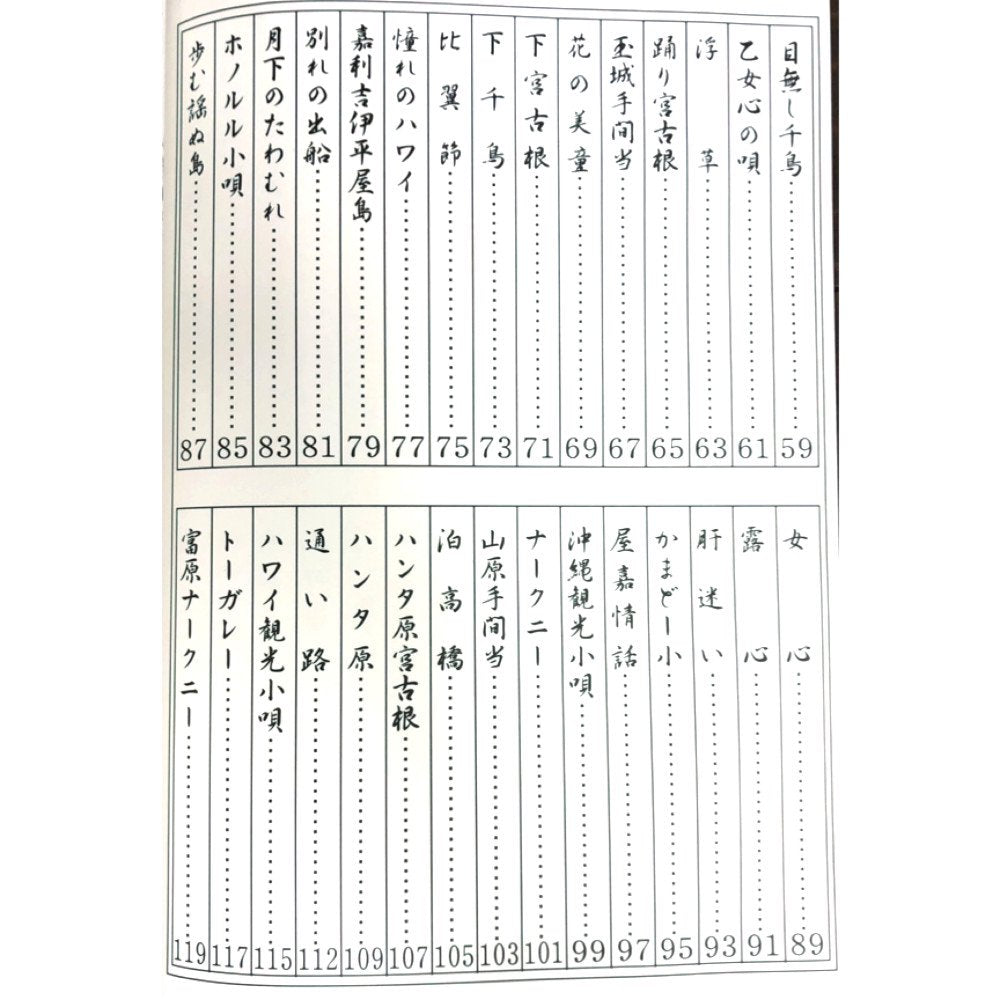 目無し千鳥 59
乙女心の唄 61
浮草 63
踊り宮古根 65
玉城手間当 67
花の美童 69
下宮古根 71
下千鳥 73
比翼節 75
憧れのハワイ 77
嘉利吉伊平屋島 79
別れの出船 81
月下のたわむれ 83
ホノルル小唄 85
歩む謡ぬ島 87
女心 89
露心 91
肝迷い 93
かまどー小 95
屋嘉情話 97
沖縄観光小唄 99
ナークニー 101
山原手間当 103
泊高橋 105
ハンタ原宮古根 107
ハンタ原 109
通い路 112
ハワイ観光小唄 115
トーガレー 117
富原ナークニー 119